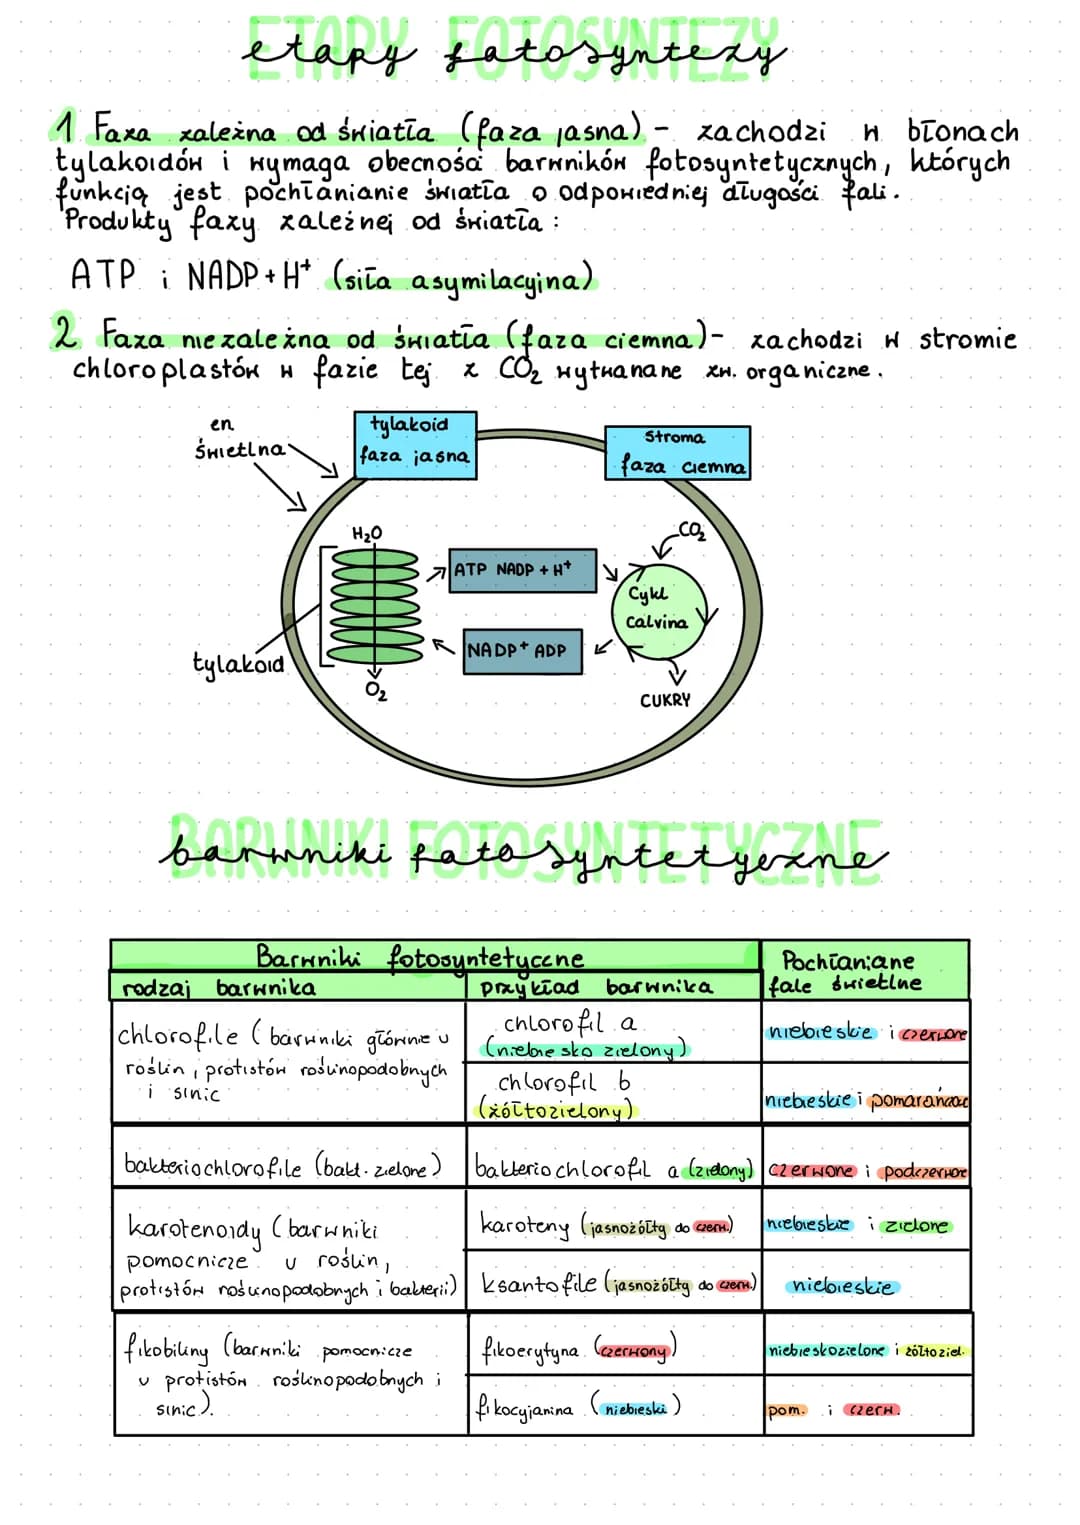 ETAPY FOTOSYNTEZY
etapy fotosyntezy
1 Faza zależna od światła (faza jasna) - zachodzi w błonach
tylakoidów i wymaga obecności barwników fotosyntetycznych, których
funkcją jest pochłanianie światła o odpowiedniej długości fali.
Produkty fazy zależnej od światła :
ATP i NADP + H⁺ (siła asymilacyjna)
2 Faza niezależna od światła (faza ciemna) - zachodzi w stromie
chloroplastów w fazie tej z CO₂ wytwanane zw. organiczne.
en
świetlna
tylakoid
faza jasna
stroma
faza ciemna
H₂O
CO₂
ATP NADP + H⁺
Cykl
Calvina
NADP⁺ ADP
tylakoid
O₂
CUKRY
BARWNIKI FOTOSYNTETYCZNE
barwniki fotosyntetyczne
Barwniki fotosyntetyczne
Pochłaniane
fale świetlne
rodzaj barwnika
przykład barwnika
chlorofile (barwniki główne u
roślin, protistów roślinopodobnych
i sinic
chlorofil a
(niebiesko zielony)
niebieskie i czerwone
chlorofil b
(żółtozielony)
niebieskie i pomarańczo
bakteriochlorofile (bakt. zielone)
bakteriochlorofil a (zielony)
czerwone i podczerwone
karotenoidy (barwniki
pomocnicze u roślin,
protistów roślinopodobnych i bakterii)
karoteny (jasnożółty do czerw.)
niebieskie i zielone
ksantofile (jasnożółty do czerw.)
niebieskie
fikobiliny (barwniki pomocnicze
u protistów roślinopodobnych i
sinic).
fikoerytyna (czerwony)
niebieskozielone i żółtoziel.
fikocyjanina (niebieski)
pom. i czerw.